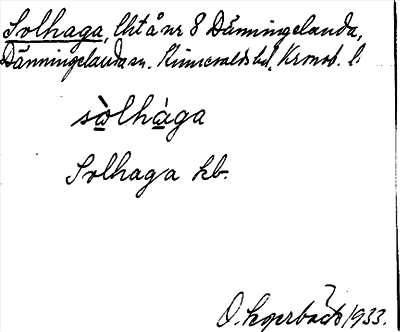 Solhaga, lht å nr 8 Dänningelanda,
Dänningelanda sn. Kinnevalds hd, Kronob. l.
sòlhàga
Solhaga kb.
O. 1933.